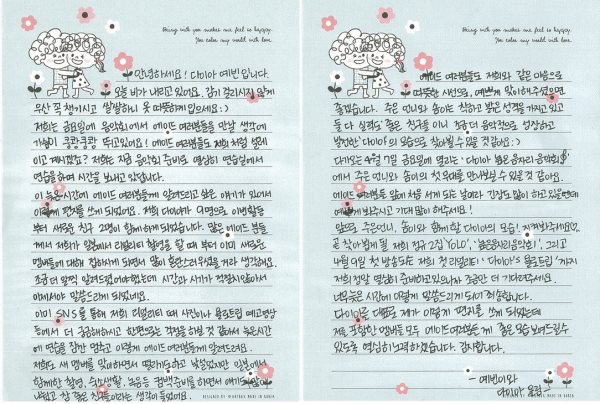 Being with you makes me feel so happy.
You color my world with love.
안녕하세요! 다이아 예빈 입니다.
오늘 비가 내리고 있어요. 감기 걸리시지 않게
우산 꼭 챙기시고 쌀쌀하니 옷 따뜻하게 입으세요:)
저희는 금요일에 음악회에서 에이드 여러분들을 만날 생각에
가슴이 쿵쾅쿵쾅 뛰고있어요! 에이드 여러분들도 저희처럼 설레
이고 계시겠죠? 저희는 지금 음악회 준비로 열심히 연습실에서
연습을하며 시간을 보내고 있답니다.
이 늦은시간에 에이드 여러분들께 알려드리고 싶은 얘기가 있어서
이렇게 편지를 쓰게 되었어요. 저희 다이아가 9명으로, 이번활동
부터 새로운 친구 2명이 함께하게 되었답니다. 많은 에이드 분들
께서 저희가 일본에서 리얼리티 촬영을 할 때 부터 이미 새로운
멤버들에 대해 접하시게 되면서 많이 혼란스러우셨을거라 생각해요.
조금 더 일찍 알려드렸어야했는데 시간과 시기가 적절치않아서
이제서야 말씀드리게 되었네요.
이미 SNS를 통해 저희 리얼리티 때 사진이나 욜로트립 예고영상
등에서 더 궁금해하시고 한편으로는 걱정을 하실 것 같아서 늦은시간
에 연습을 잠깐 멈추고 이렇게 에이드 여러분들께 알려드려요.
저희도 새 멤버를 맞이하면서 떨리기도하고 낯설었지만 일본에서
함께한 촬영, 숙소생활, 녹음등 컴백준비를 하면서 얘기도 많이
나눴고 참 좋은 친구들이라는 생각이 들었어요.
DESIGNED BY MADE IN KOREA
Being with you makes me feel so happy.
You color my world with love.
에이드 여러분들도 저희와 같은 마음으로
따뜻한 시선으로, 예쁘게 맞이해주셨으면
좋겠습니다. 주은 언니와 솜이는 착하고 밝은 성격을 가지고 있고
둘 다 실력도 좋은 친구들이니 조금 더 음악적으로 성장하고
발전한 '다이아'의 모습으로 찾아뵐 수 있을 것 같아요:)
다가오는 4월 7일 금요일에 열리는 '다이아 봄 음자리 음악회'
에서 주은 언니와 솜이의 첫 무대를 만나보실 수 있을 것 같아요.
에이드 여러분들 앞에 처음 서게 되는 날이라 긴장도 많이 하고 있을텐데
예쁘게 봐주시고 기대 많이 해주세요!
앞으로 주은언니, 솜이와 함께 할 다이아의 모습! 지켜봐주세요.
곧 찾아뵙게 될 저희 정규 2집 'YOLO', '봄음자리음악회', 그리고
4월 9일 첫 방송되는 저희 첫 리얼리티 '다이아's 욜로트립'까지
저희 정말 열심히 준비하고있으니까 조금만 더 기다려주세요.
너무늦은 시간에 이렇게 말씀드리게 되어 죄송합니다.
다이아를 대표로 제가 이렇게 편지를 쓰게 되었는데
저를 포함한 멤버들 모두 에이드여러분들께 좋은 모습 보여드릴수
있도록 열심히노력하겠습니다. 감사합니다.
- 예빈이와
다이아 올림 -
MADE IN KOREA